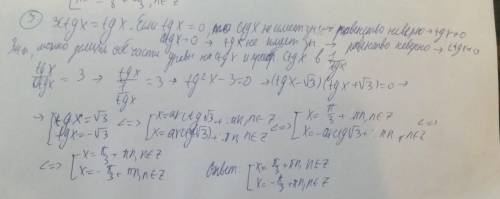 ③ 3ctgx = tgx. Если tgx = 0, то ctgx не имеет → равенство неверно → tgx ≠ 0
ctgx = 0 → tgx не имеет → равенство неверно → ctgx ≠ 0
можно части на ctgx и ctgx в 1/tgx
tgx/ctgx = 3 → tgx/(1/tgx) = 3 → tg²x - 3 = 0 → (tgx - √3)(tgx + √3) = 0 →
→ [tgx = √3 tgx = -√3 <=> [x = arctg√3 + πn, n∈Z x = -arctg√3 + πn, n∈Z <=> [x = π/3 + πn, n∈Z x = -arctg√3 + πn, n∈Z
<=> [x = π/3 + πn, n∈Z x = -π/3 + πn, n∈Z Ответ: [x = π/3 + πn, n∈Z x = -π/3 + πn, n∈Z